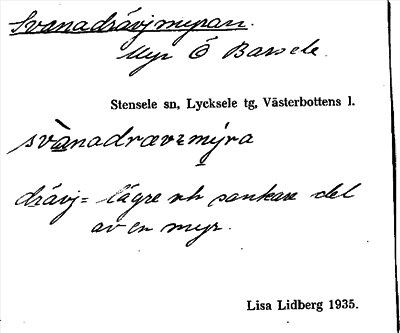 Svanadrävjmyran.
Myr Ö Barsele.
Stensele sn, Lycksele tg, Västerbottens l.
svànadrævɪmýra
drävj = lägre och sankare del
av en myr.
Lisa Lidberg 1935.